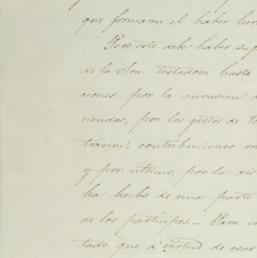 que formaron el haber her
Pero este debe haber suf
de la Sra. testadora hasta
ciones por la invasion d
ciendas, por los gastos de te
tracion, contribuciones or
y por último, por la dis
ha hecho de una parte
de los partícipes
tado que á virtud de esas